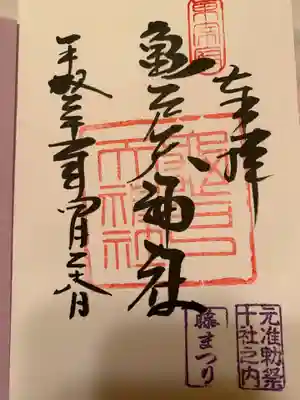 東宰府
奉拝
亀戸天神社
平成三十一年四月二十八日
元准勅祭
十社之内
藤まつり